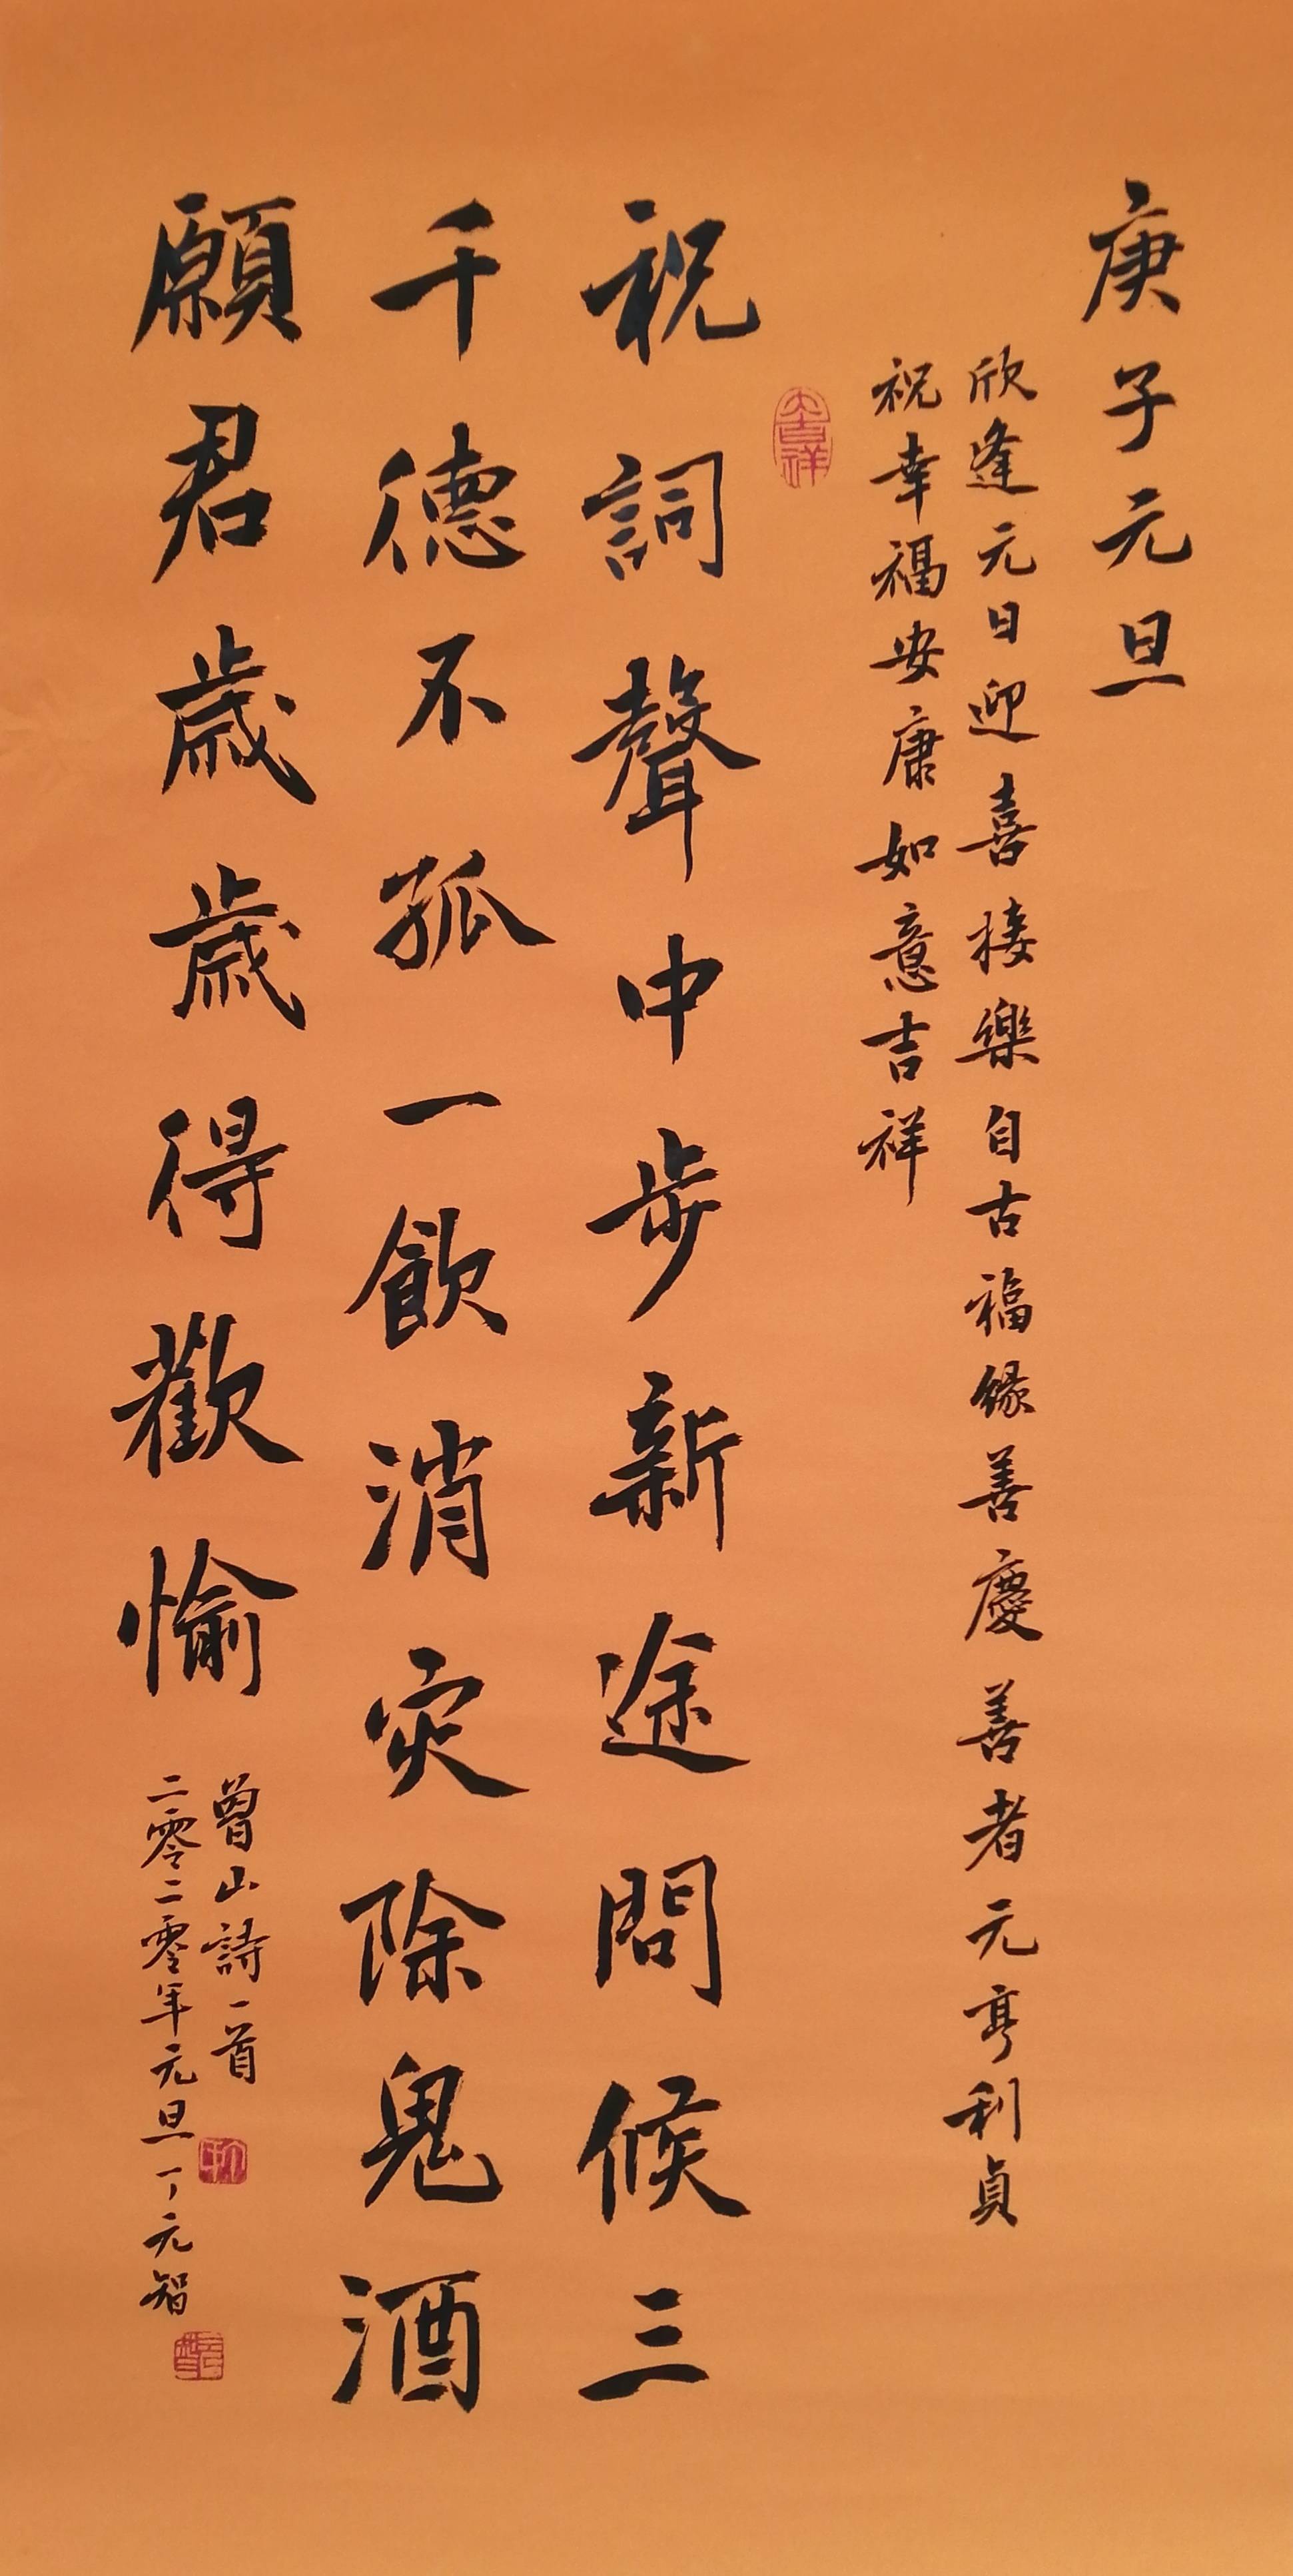 庚子元旦
欣逢元日迎喜接樂自古福緣善慶善者元亨利貞
祝幸福安康如意吉祥
大吉祥
祝詞聲中步新途問候三
千德不孤一飲消灾除鬼酒
願君歲歲得歡愉
曾山詩一首
二零二零年元旦丁元智